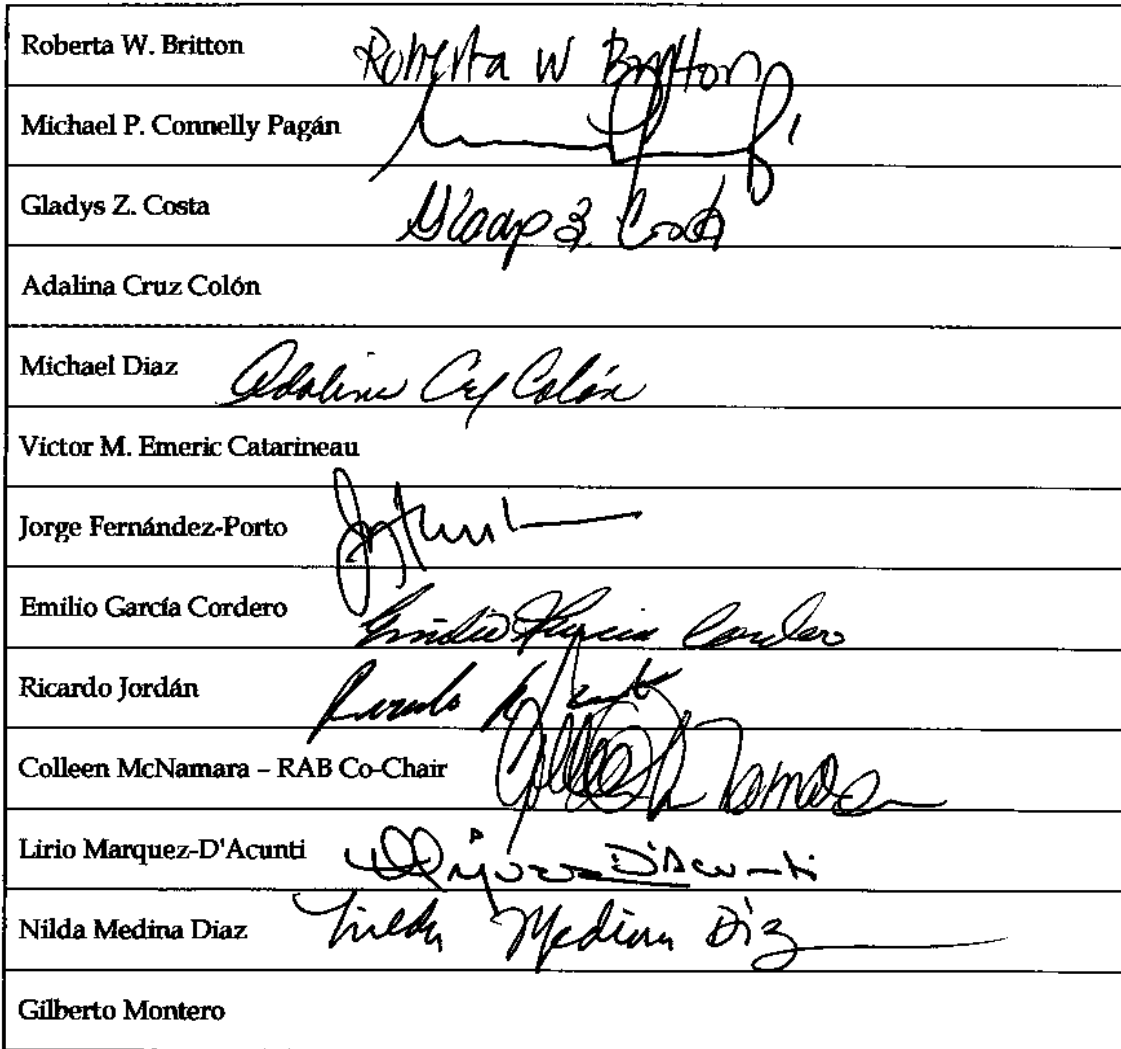 Roberta W. Britton Roberta W Britton
Michael P. Connelly Pagán
Gladys Z. Costa Gladys Z. Costa
Adalina Cruz Colón
Michael Diaz Adalina Cruz Colón
Victor M. Emeric Catarineau
Jorge Fernández-Porto
Emilio García Cordero Emilio Garcia Cordero
Ricardo Jordán
Colleen McNamara – RAB Co-Chair Colleen McNamara
Lirio Marquez-D'Acunti D'Acunti
Nilda Medina Diaz Nilda Medina Diaz
Gilberto Montero